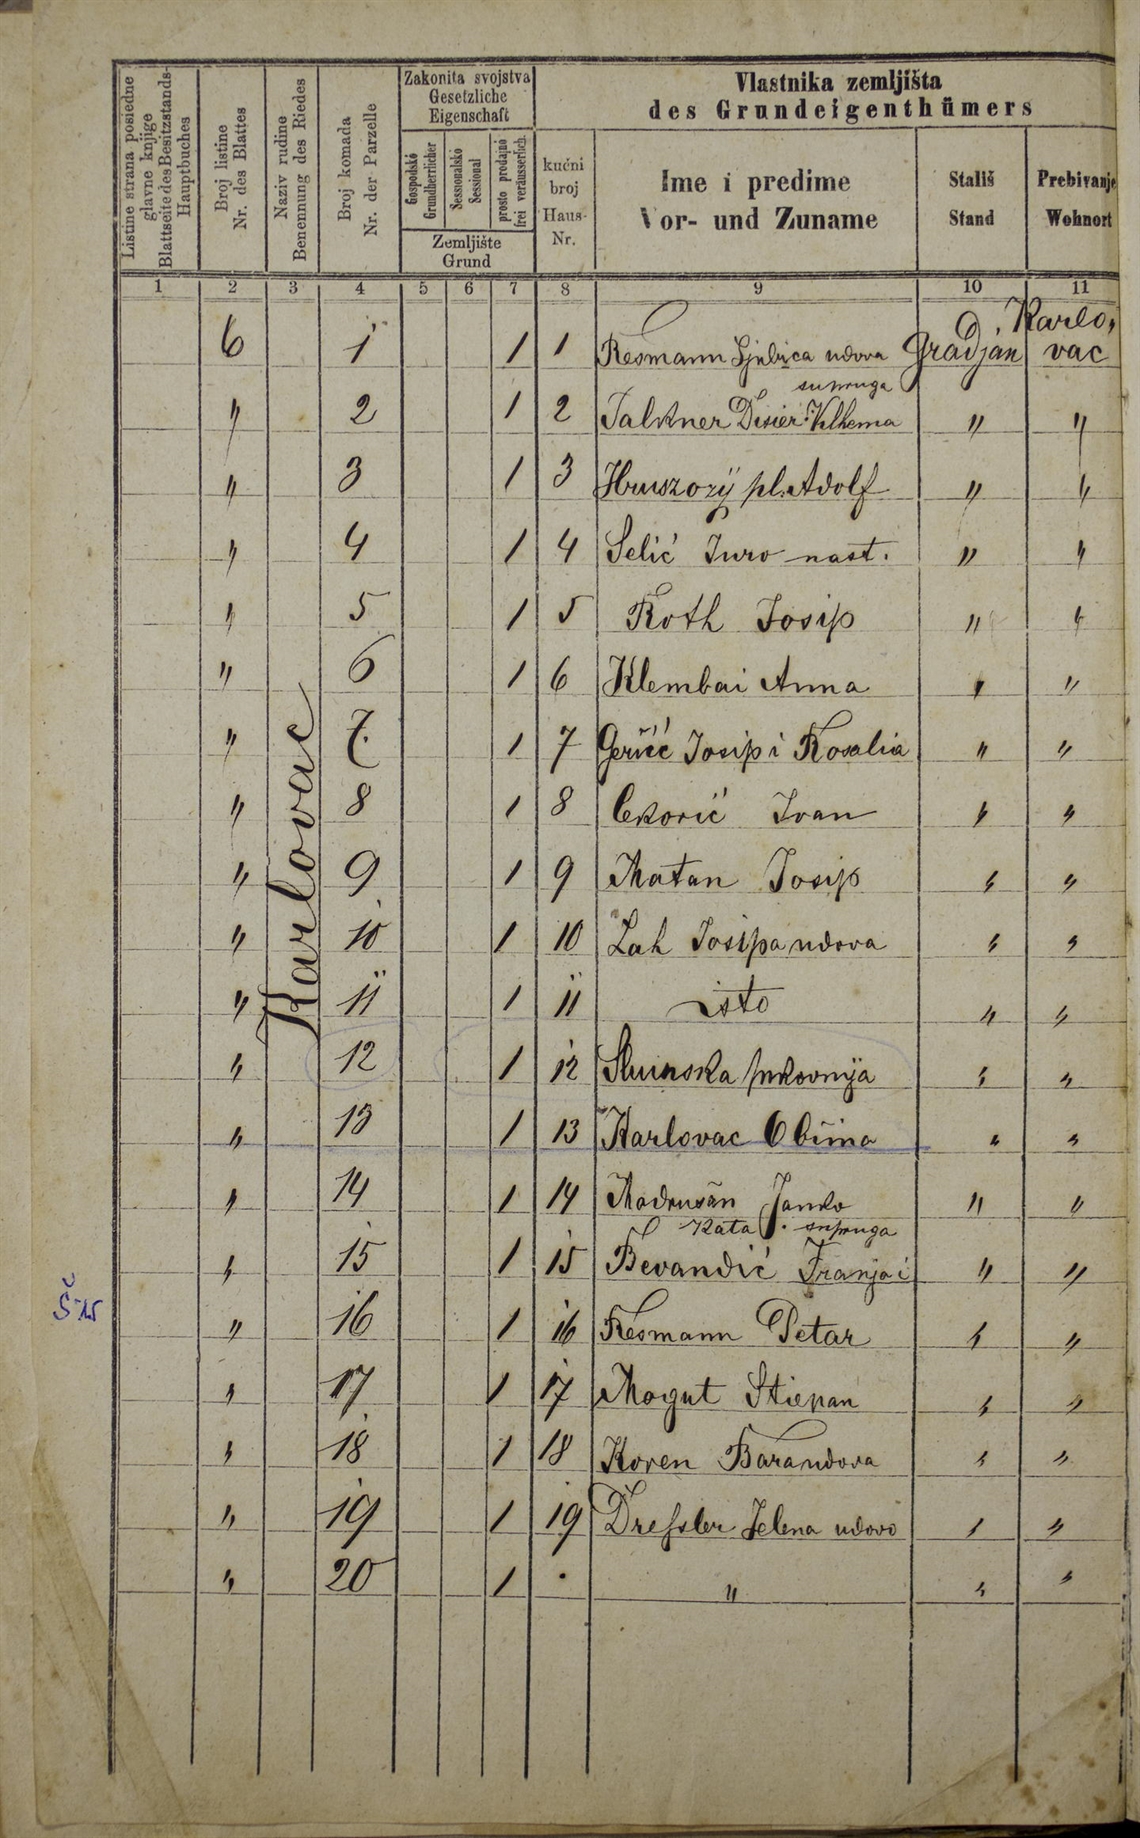 Listine strana posjedne
glavne knjige
Blattseite des Besitzstands-
Hauptbuches
Broj listine
Nr. des Blattes
Naziv rudine
Benennung des Riedes
Broj komada
Nr. der Parzelle
Zakonita svojstva
Gesetzliche
Eigenschaft
Gospodsko
Grundherrlicher
Sessionalsko
Sessional
prosto prodajno
frei veräusserlich.
Zemljište
Grund
Vlastnika zemljišta
des Grundeigenthümers
kućni
broj
Haus-
Nr.
Ime i predime
Vor- und Zuname
Stališ
Stand
Prebivanje
Wohnort
1 2 3 4 5 6 7 8 9 10 11
Karlovac
6 1 1 1 Resmann Ljubica udova Gradjan Karlovac
supruga
" 2 1 2 Falkner Disier Vilhema " "
" 3 1 3 pl. Adolf " "
" 4 1 4 Selić Juro nast. " "
" 5 1 5 Roth Josip " "
" 6 1 6 Klembai Anna " "
" 7 1 7 Josip i Rosalia " "
" 8 1 8 Ckorić Ivan " "
" 9 1 9 Matan Josip " "
" 10 1 10 Lah Josipa udova " "
" 11 1 11 isto " "
" 12 1 12 Sluinska pukovnija " "
" 13 1 13 Karlovac Obćina " "
" 14 1 14 Modrušan Janko " "
Kata supruga
" 15 1 15 Bevandić Franjo i " "
Š-15
" 16 1 16 Resmann Petar " "
" 17 1 17 Mogut Stiepan " "
" 18 1 18 Koren Bara udova " "
" 19 1 19 Dreſsler Jelena udova " "
" 20 1 . " " "